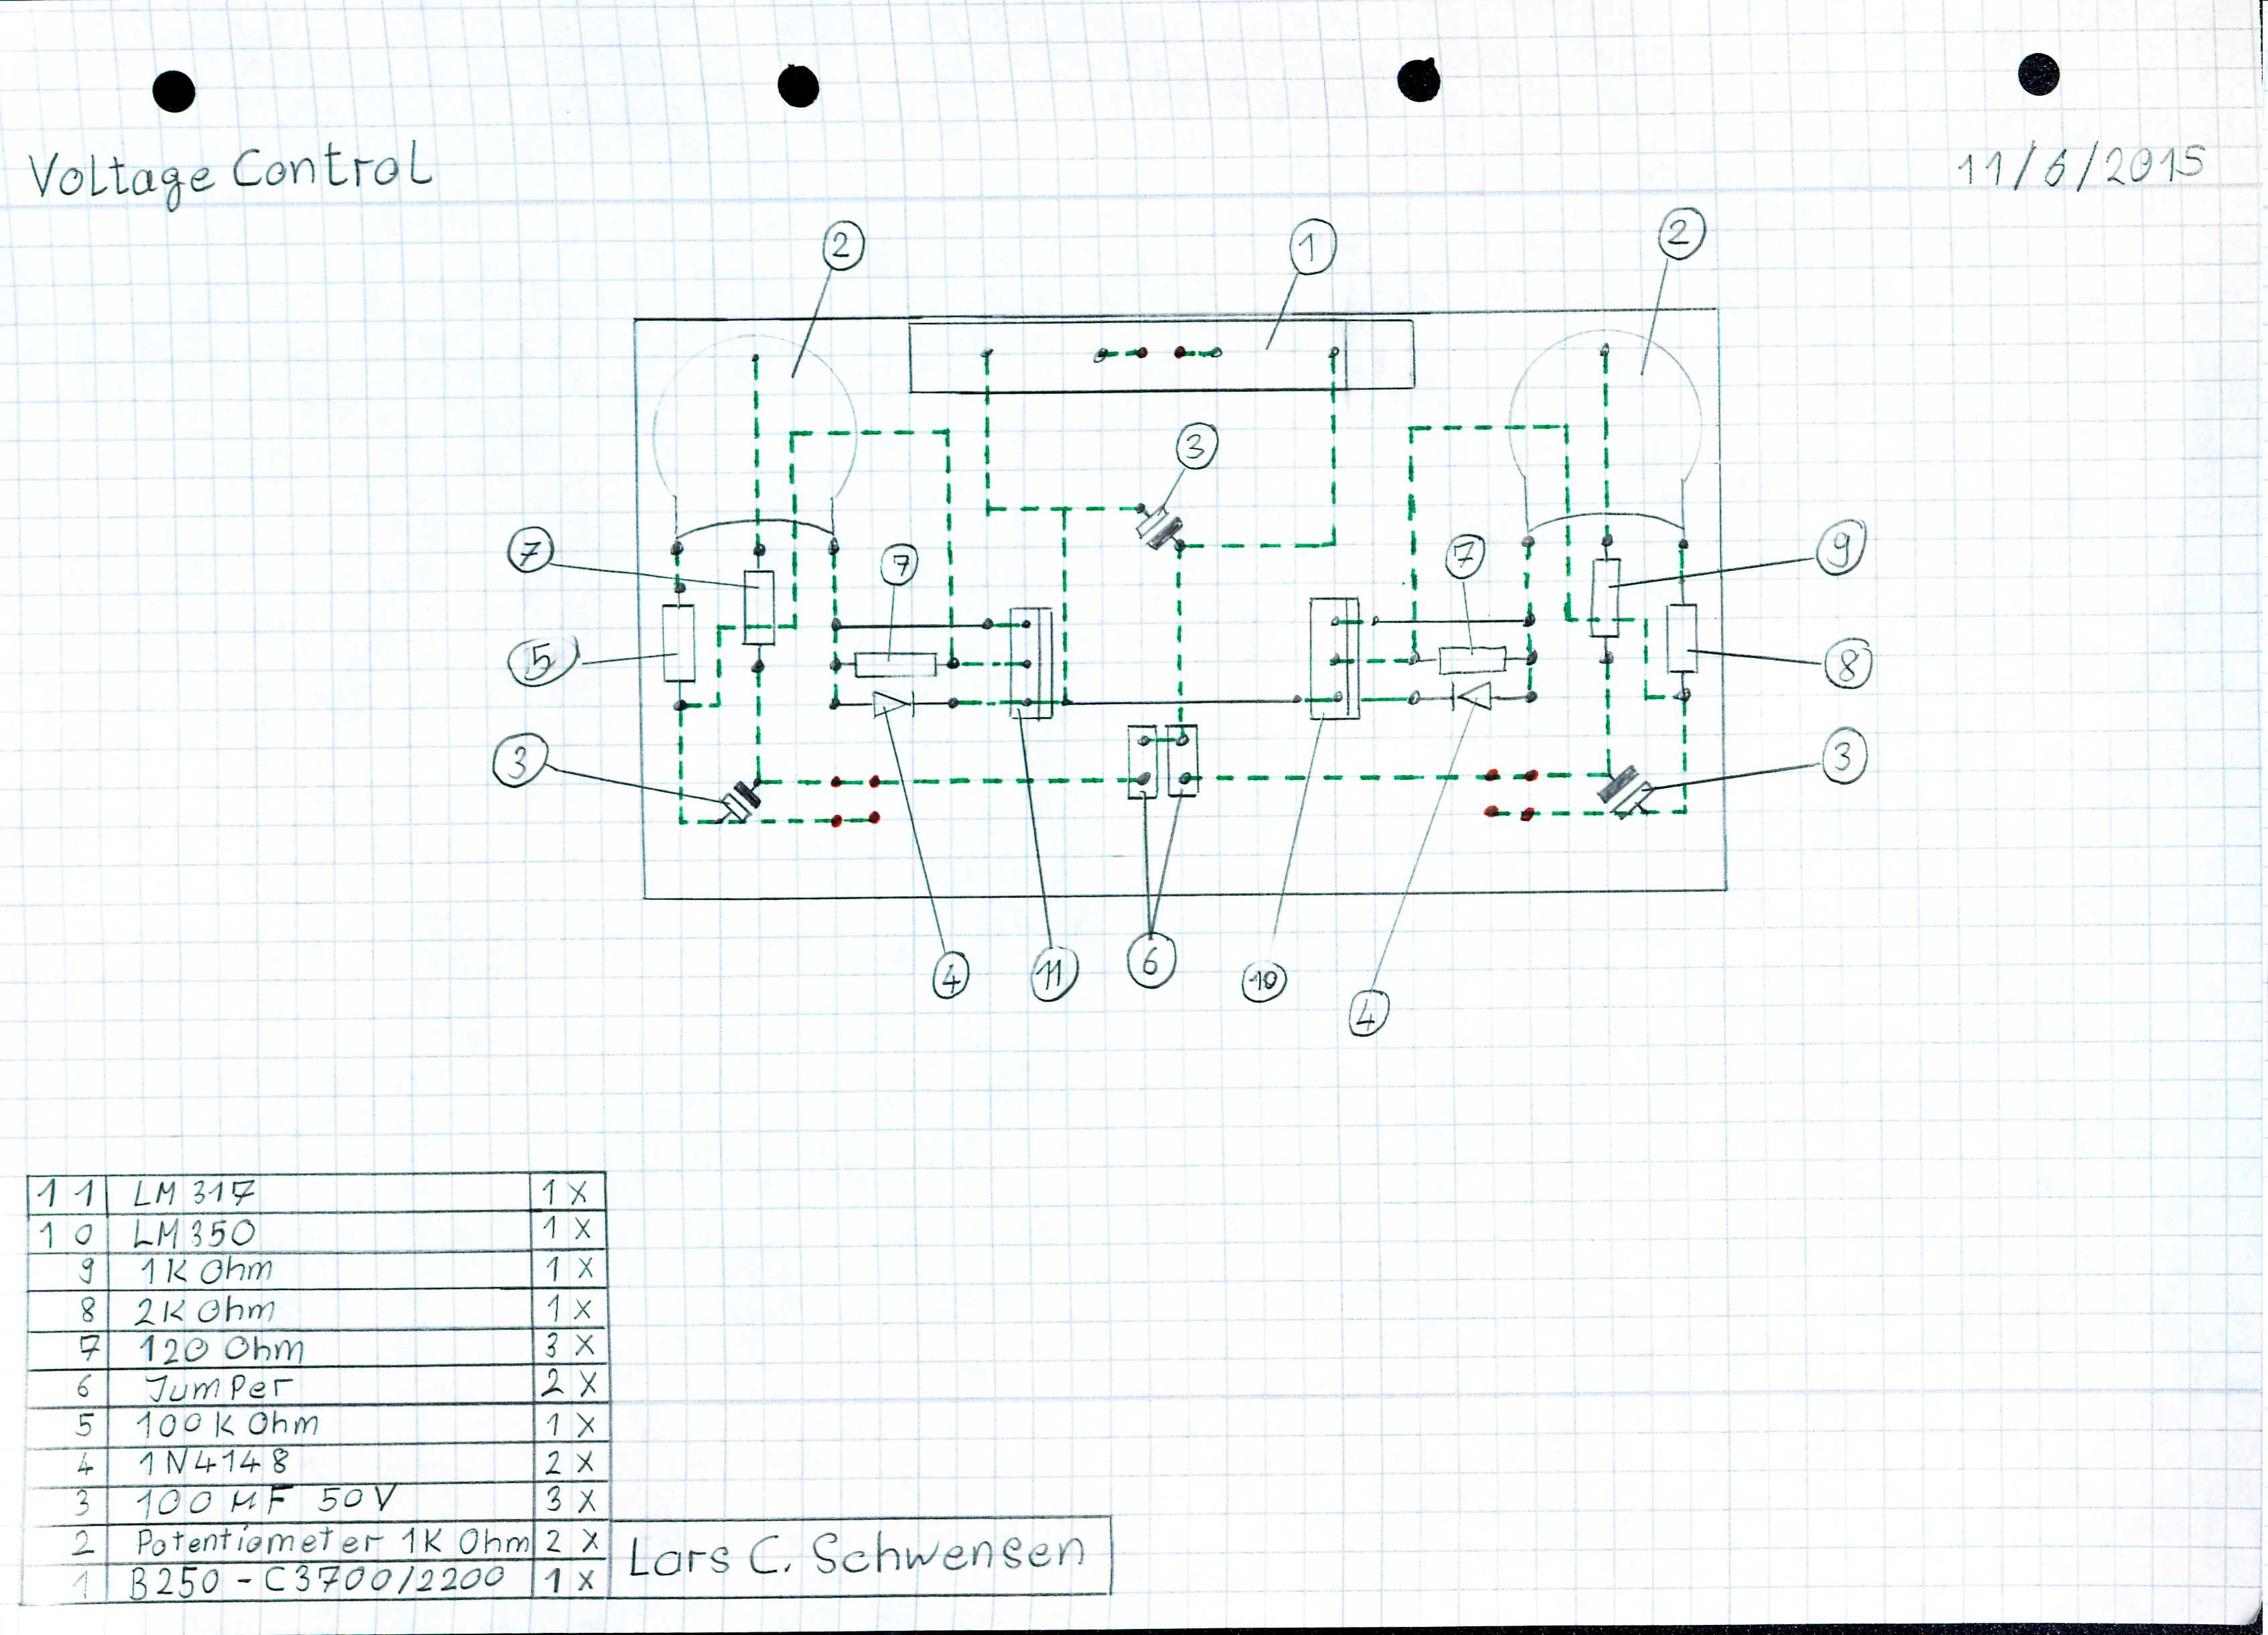 Voltage Control 11/6/2015
2 1 2
3
7 7 7 9
5 8
3 3
4 11 6 10 4
11 LM 317 1 X
10 LM350 1 X
9 1K Ohm 1 X
8 2K Ohm 1 X
7 120 Ohm 3 X
6 JumPer 2 X
5 100K Ohm 1 X
4 1N4148 2 X
3 100 MF 50V 3 X
2 Potentiometer 1K Ohm 2 X
1 B250-C3700/2200 1 X
Lars C. Schwensen